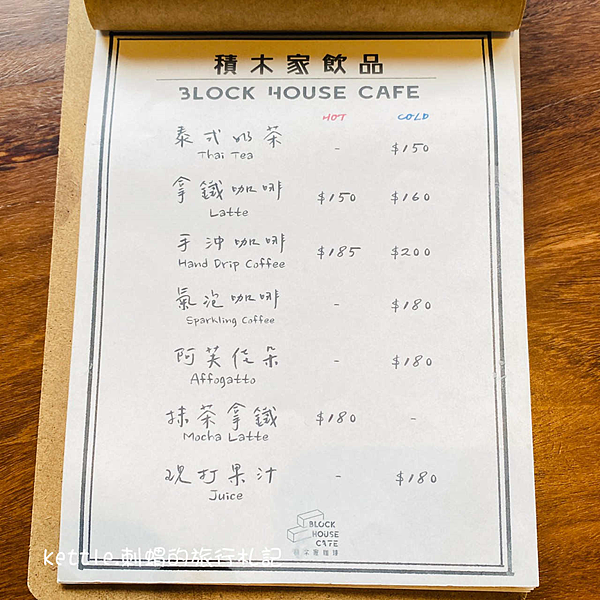 積木家飲品
BLOCK HOUSE CAFE
HOT COLD
泰式奶茶 - $150
Thai Tea
拿鐵咖啡 $150 $160
Latte
手沖咖啡 $185 $200
Hand Drip Coffee
氣泡咖啡 - $180
Sparkling Coffee
阿芙佳朵 - $180
Affogatto
抹茶拿鐵 $180 -
Mocha Latte
現打果汁 - $180
Juice
BLOCK
HOUSE
CAFE
積木家咖啡
Kettle.刺蝟的旅行札記